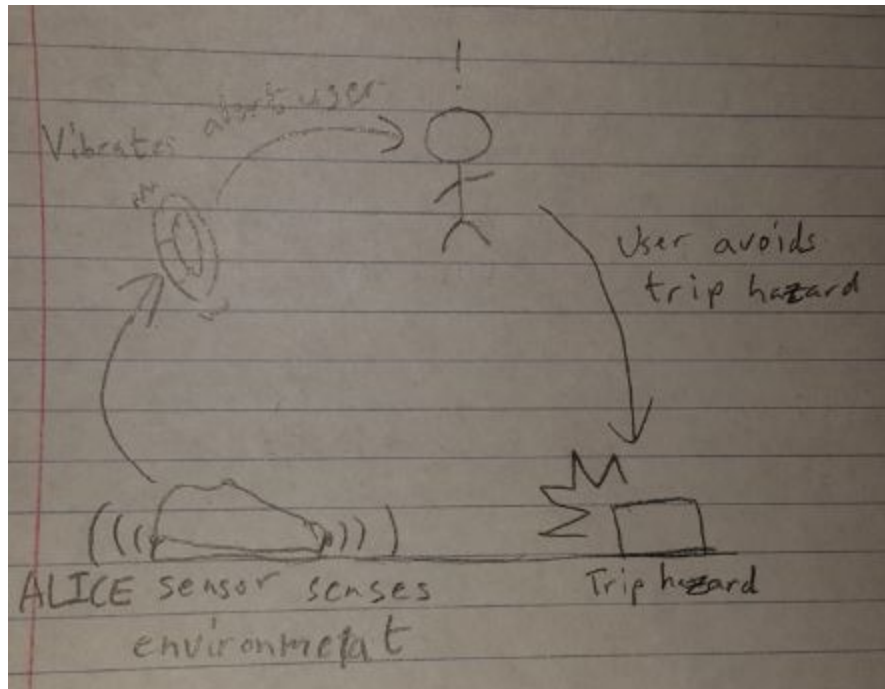 !
Vibrates
alerts user
User avoids
trip hazard
ALICE sensor senses
environment
Trip hazard